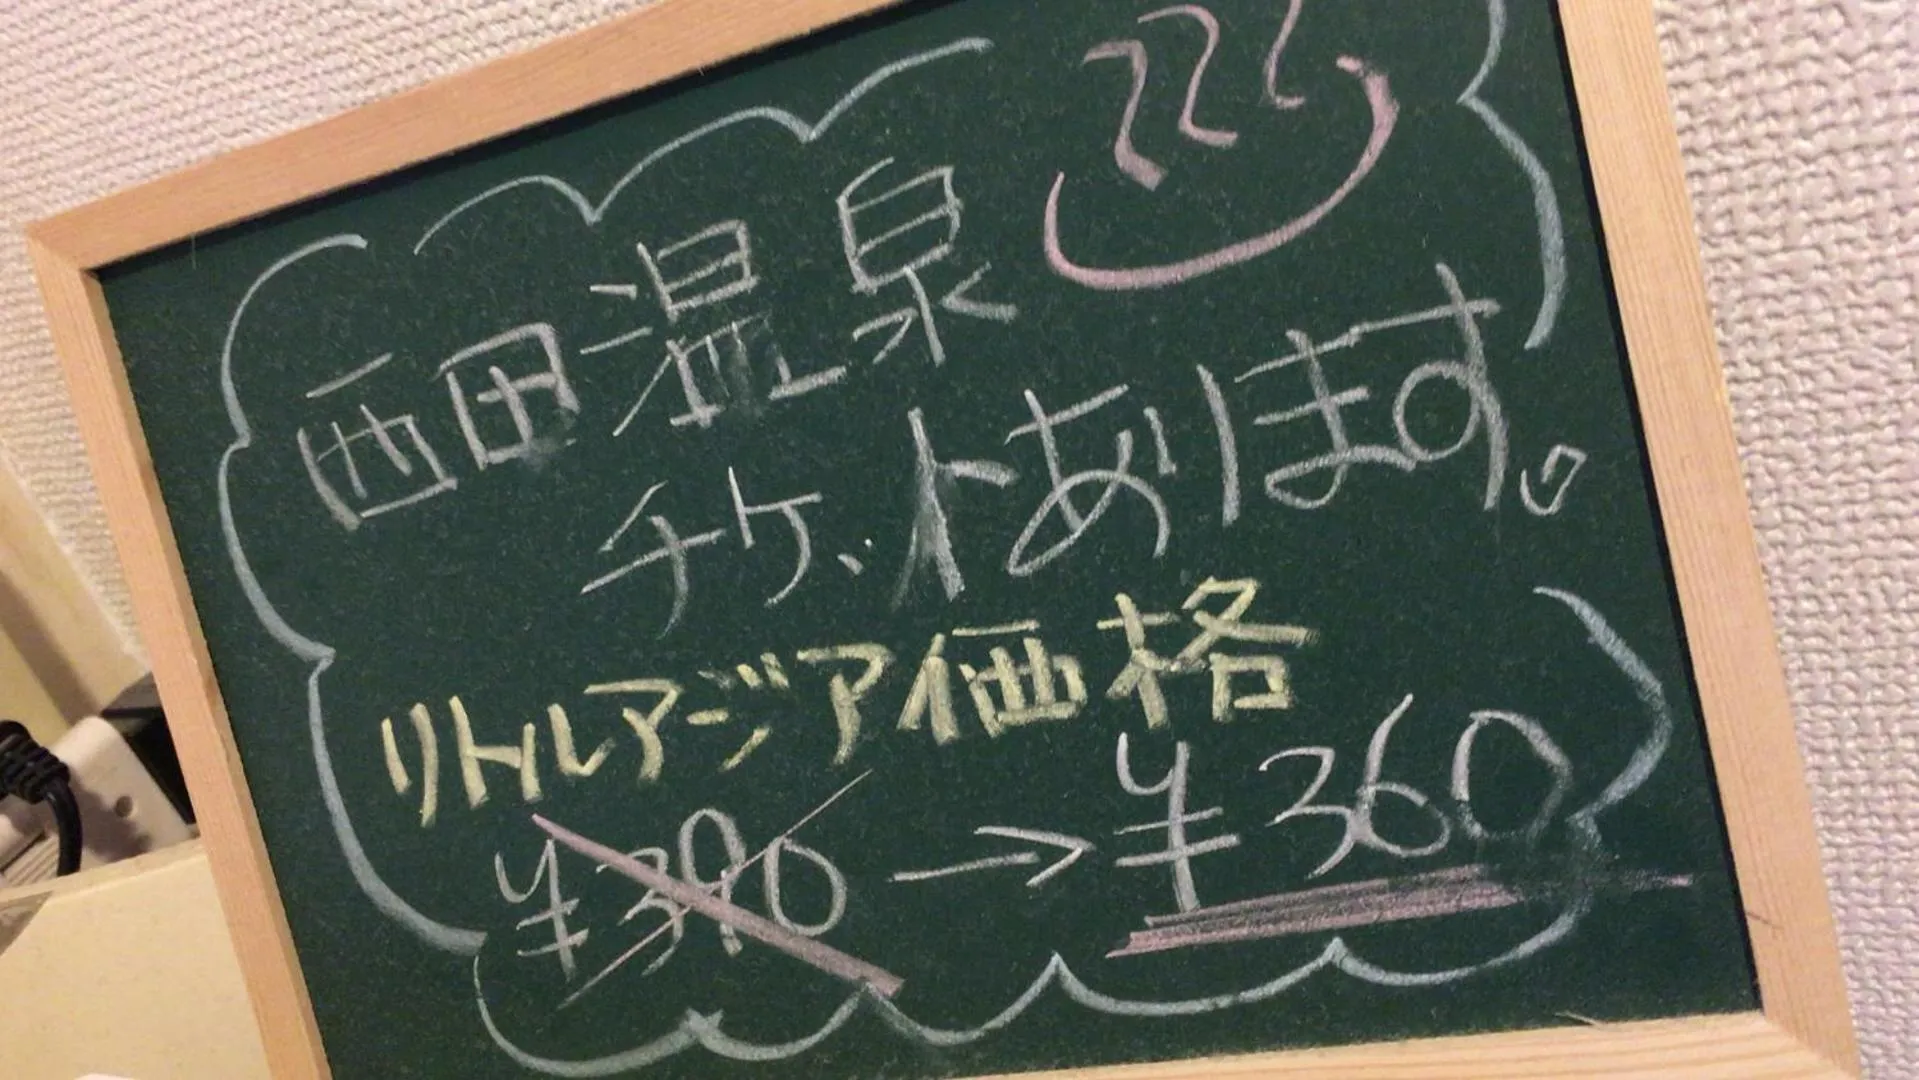 西田温泉
チケットあります♡
リトルアジア価格
¥390→¥360